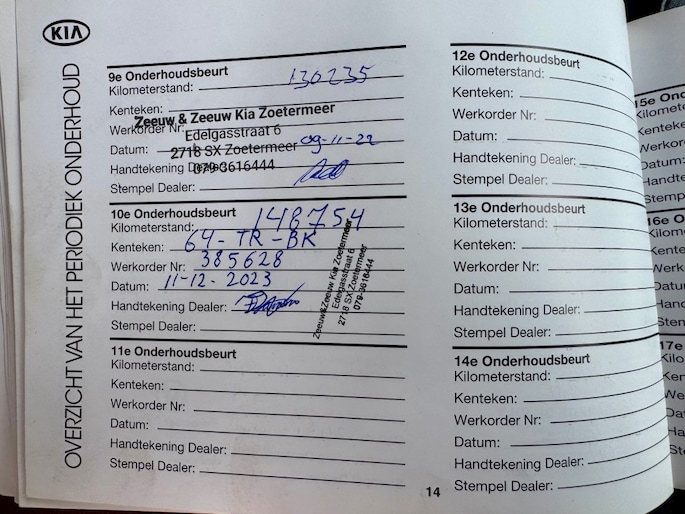 KIA
OVERZICHT VAN HET PERIODIEK ONDERHOUD
9e Onderhoudsbeurt
Kilometerstand: 130235
Kenteken:
Zeeuw & Zeeuw Kia Zoetermeer
Werkorder Nr:
Edelgasstraat 6
Datum: 09-11-22
2718 SX Zoetermeer
Handtekening Dealer:
079-3616444
Stempel Dealer:
10e Onderhoudsbeurt
Kilometerstand: 148754
Kenteken: 64-TR-BK
Werkorder Nr: 385628
Datum: 11-12-2023
Handtekening Dealer:
Stempel Dealer:
Zeeuw & Zeeuw Kia Zoetermeer
Edelgasstraat 6
2718 SX Zoetermeer
079-3616444
11e Onderhoudsbeurt
Kilometerstand:
Kenteken:
Werkorder Nr:
Datum:
Handtekening Dealer:
Stempel Dealer:
12e Onderhoudsbeurt
Kilometerstand:
Kenteken:
Werkorder Nr:
Datum:
Handtekening Dealer:
Stempel Dealer:
13e Onderhoudsbeurt
Kilometerstand:
Kenteken:
Werkorder Nr:
Datum:
Handtekening Dealer:
Stempel Dealer:
14e Onderhoudsbeurt
Kilometerstand:
Kenteken:
Werkorder Nr:
Datum:
Handtekening Dealer:
Stempel Dealer:
14